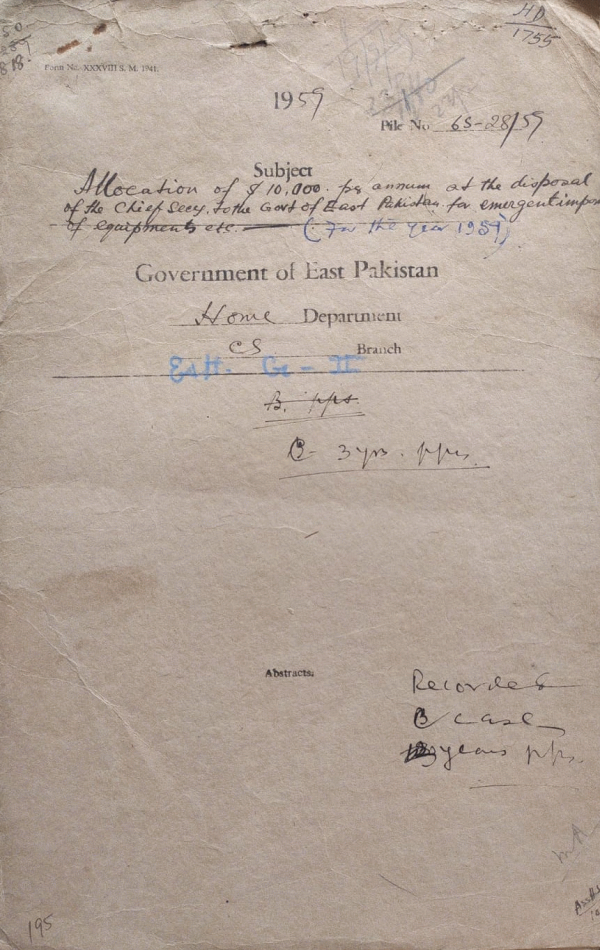 HD
1755
Form No. XXXVIII S. M. 1941.
1959
File No 6S-28/59
Subject
Allocation of $ 10,000. per annum at the disposal
of the Chief Secy. to the Govt of East Pakistan for emergent impor
of equipments etc. (For the year 1959)
Government of East Pakistan
Home Department
CS Branch
Estt. G-II
B. pps.
B- 3 yrs. pps.
Abstracts.
Recorded
B case
3 years pps.
195